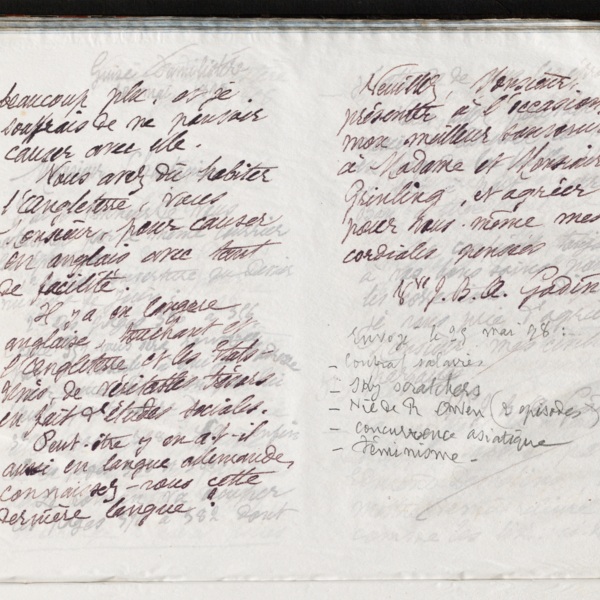 beaucoup plu, et je
souffrais de ne pouvoir
causer avec elle.
Vous avez dû habiter
l'Angleterre, vous
Monsieur, pour causer
en anglais avec tant
de facilité.
Il y a en langue
anglaise, touchant et
l'Angleterre et les Etats
Unis, de véritables trésors
en fait d'études sociales.
Peut-être y en a-t-il
aussi en langue allemande,
connaissez-vous cette
dernière langue?
Veuillez, Monsieur,
présenter à l'occasion
mon meilleur souvenir
à Madame et Monsieur
Grinling, et agréer
pour vous-même mes
cordiales pensées
Vve J. B. A. Godin
Envoyé le 25 mai 98:
- Contrat salaires
- Sky scratchers
- Vie de R Owen (2 épisodes)
- concurrence asiatique
- Féminisme.-